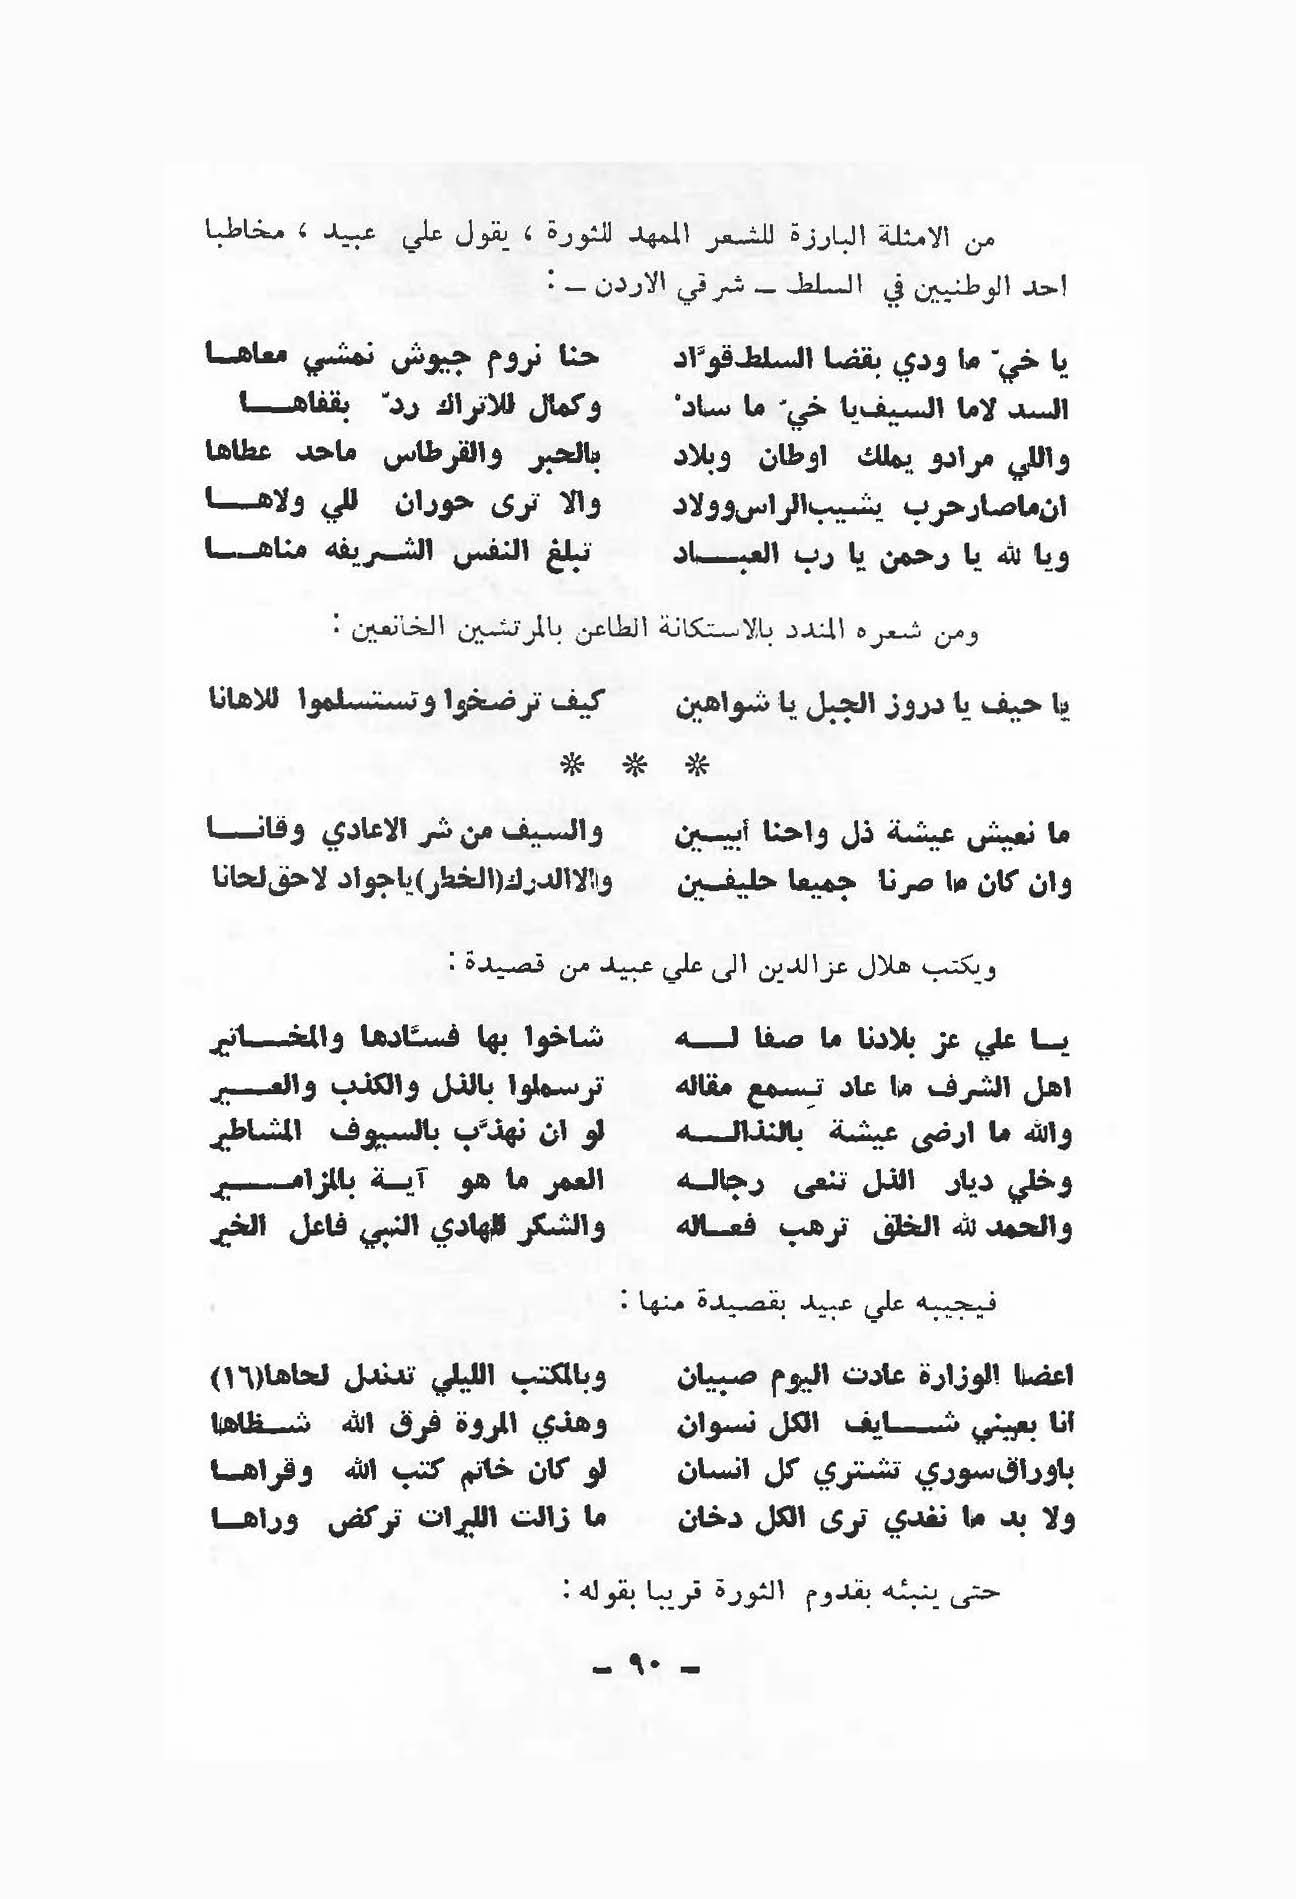 من الامثلة البارزة للشعر الممهد للثورة ، يقول علي عبيد ، مخاطبا
احد الوطنيين في السلط ــ شرقي الاردن ــ :
يا خيّ ما ودي بقضا السلط قوَّاد حنا نروم جيوش نمشي معاهـــا
السد لاما السيف يا خيّ ما سادْ وكمال للاتراك ردّ بقفاهـــا
واللي مرادو يملك اوطان وبلاد بالحبر والقرطاس ماحد عطاها
ان ماصار حرب يشيب الراس وولاد والا ترى حوران للي ولاهـــا
ويا لله يا رحمن يا رب العبــــاد تبلغ النفس الشريفه مناهـــا
ومن شعره المندد بالاستكانة الطاعن بالمرتشين الخانعين :
يا حيف يا دروز الجبل يا شواهين كيف ترضخوا وتستسلموا للاهانا
* * *
ما نعيش عيشة ذل واحنا أبيــين والسيف من شر الاعادي وقانـــا
وان كان ما صرنا جميعا حليفــين والا الدرك (الخطر) يا جواد لاحق لحانا
ويكتب هلال عزالدين الى علي عبيد من قصيدة :
يــا علي عز بلادنا ما صفا لـــه شاخوا بها فسَّادها والمخــانير
اهل الشرف ما عاد تِسمع مقاله ترسملوا بالذل والكذب والعـــير
والله ما ارضى عيشة بالنذالــه لو ان نهذَّب بالسيوف المشاطير
وخلي ديار الذل تنعى رجالــه العمر ما هو آيــة بالمزامــــير
والحمد لله الخلق ترهب فعــاله والشكر للهادي النبي فاعل الخير
فيجيبه علي عبيد بقصيدة منها :
اعضا الوزارة عادت اليوم صبيان وبالمكتب الليلي تدندل لحاها(١٦)
أنا بعيني شـــايف الكل نسوان وهذي المروة فرق الله شــظاها
باوراق سوري تشتري كل انسان لو كان خاتم كتب الله وقراهــا
ولا بد ما نغدي ترى الكل دخان ما زالت الليرات تركض وراهــا
حتى ينبئه بقدوم الثورة قريبا بقوله :
ــ ٩٠ ــ